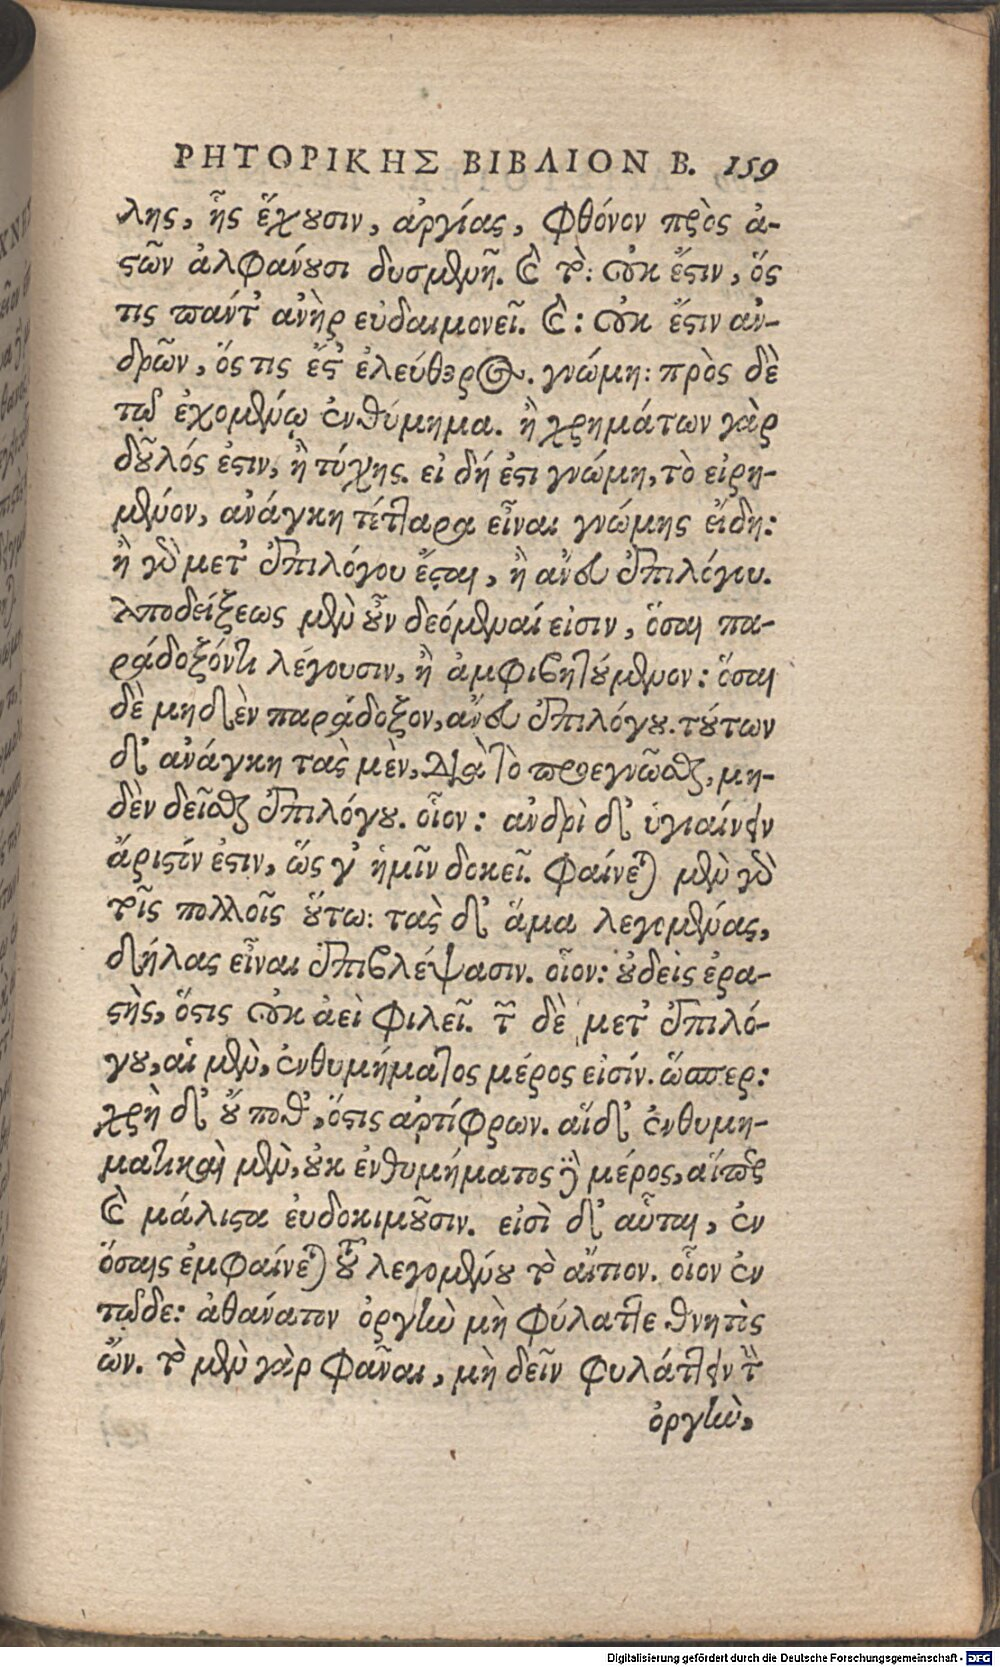 ΡΗΤΟΡΙΚΗΣ ΒΙΒΛΙΟΝ Β. 159
λης, ἧς ἔχουσιν, ἀργίας, φθόνον πρὸς ἀ-
στῶν ἀλφάνουσι δυσμενῆ. καὶ τὸ: οὐκ ἔστιν, ὅς
τις πάντ' ἀνὴρ εὐδαιμονεῖ. καὶ: οὐκ ἔστιν ἀν-
δρῶν, ὅς τις ἔστ' ἐλεύθερος. γνώμη: πρὸς δὲ
τῷ ἐχομένῳ ἐνθύμημα. ἢ χρημάτων γὰρ
δοῦλός ἐστιν, ἢ τύχης. εἰ δή ἐστι γνώμη, τὸ εἰρη-
μένον, ἀνάγκη τέτταρα εἶναι γνώμης εἴδη:
ἢ γὰρ μετ' ἐπιλόγου ἔσται, ἢ ἄνευ ἐπιλόγου.
Ἀποδείξεως μὲν οὖν δεόμεναί εἰσιν, ὅσαι πα-
ράδοξόν τι λέγουσιν, ἢ ἀμφισβητούμενον: ὅσαι
δὲ μηδὲν παράδοξον, ἄνευ ἐπιλόγου. τούτων
δ' ἀνάγκη τὰς μὲν, διὰ τὸ προεγνῶσθαι, μη-
δὲν δεῖσθαι ἐπιλόγου. οἷον: ἀνδρὶ δ' ὑγιαίνειν
ἄριστόν ἐστιν, ὥς γ' ἡμῖν δοκεῖ. φαίνεται μὲν γὰρ
τοῖς πολλοῖς οὕτω: τὰς δ' ἅμα λεγομένας,
δήλας εἶναι ἐπιβλέψασιν. οἷον: οὐδεὶς ἐρα-
στὴς, ὅστις οὐκ ἀεὶ φιλεῖ. τῶν δὲ μετ' ἐπιλό-
γου, αἱ μὲν, ἐνθυμήματος μέρος εἰσίν. ὥσπερ:
χρὴ δ' οὔ ποθ', ὅστις ἀρτίφρων. αἵ δ' ἐνθυμη-
ματικαὶ μὲν, οὐκ ἐνθυμήματος δὲ μέρος, αἵπερ
καὶ μάλιστα εὐδοκιμοῦσιν. εἰσὶ δ' αὗται, ἐν
ὅσαις ἐμφαίνεται τοῦ λεγομένου τὸ αἴτιον. οἷον ἐν
τῷδε: ἀθάνατον ὀργὴν μὴ φύλαττε θνητὸς
ὤν. τὸ μὲν γὰρ φᾶναι, μὴ δεῖν φυλάττειν τὴν
ὀργὴν,
Digitalisierung gefördert durch die Deutsche Forschungsgemeinschaft - DFG